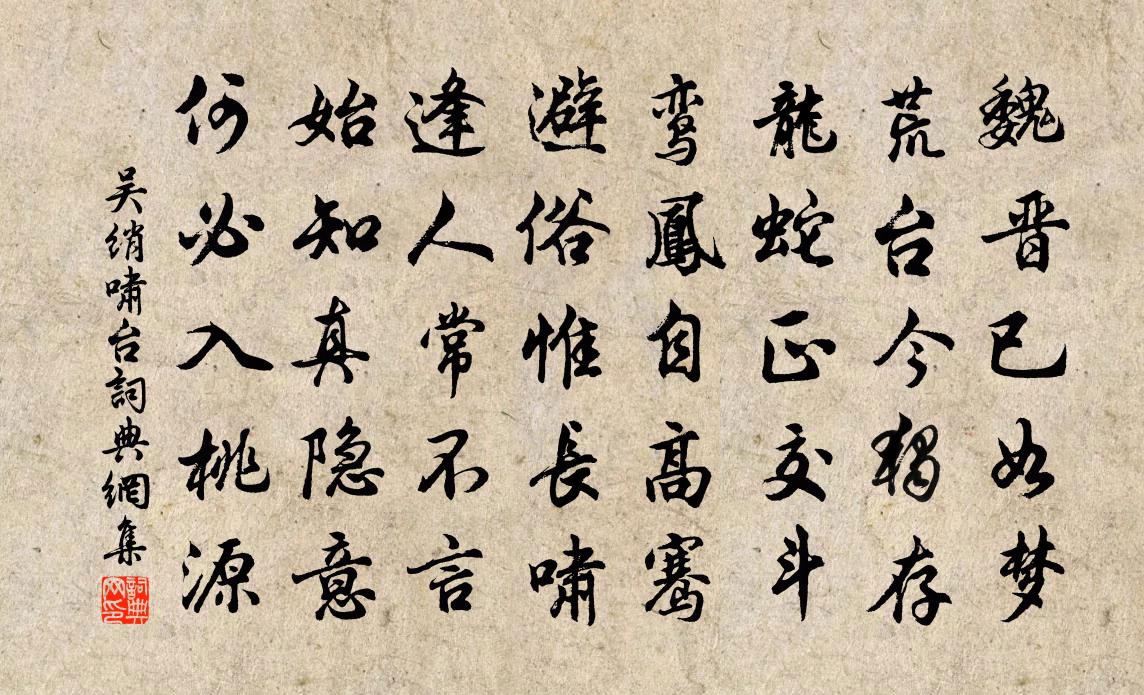 魏晋已如梦
荒台今独存
龍蛇正交斗
鸾鳳自高骞
避俗惟長啸
逢人常不言
始知真隐意
何必入桃源
吴绡啸台詞典網集
詞典网印